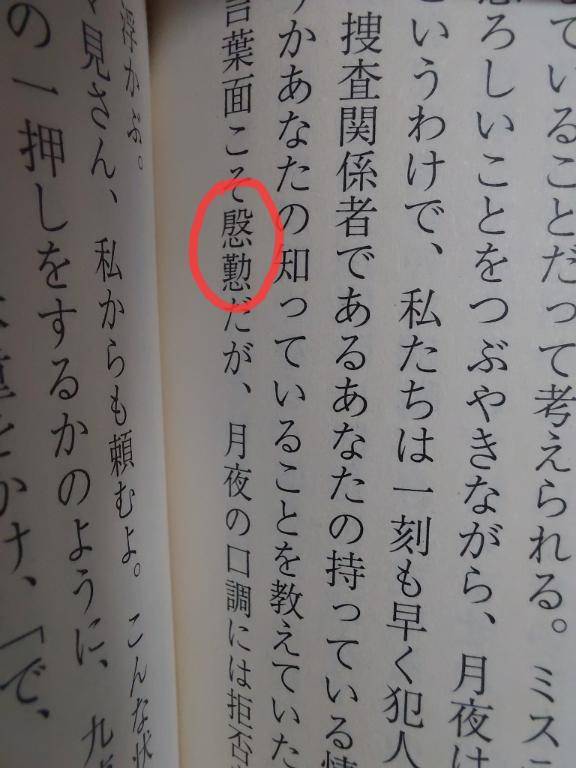 ていることだって考えられる。ミステ
恐ろしいことをつぶやきながら、月夜は
というわけで、私たちは一刻も早く犯人
捜査関係者であるあなたの持っている情
うかあなたの知っていることを教えていた
言葉面こそ慇懃だが、月夜の口調には拒否
浮かぶ。
見さん、私からも頼むよ。こんな状
の一押しをするかのように、九
をかけ、「で、